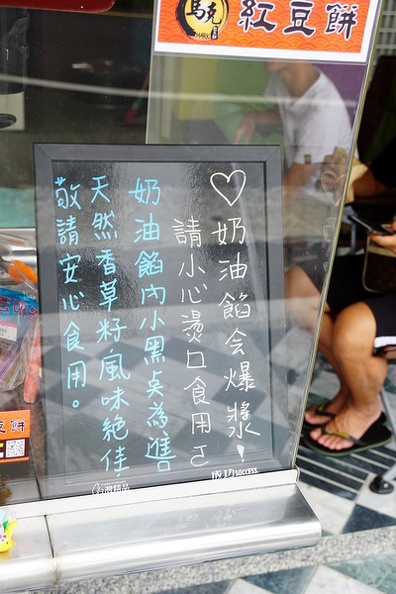 馬克
MARK
紅豆餅
♡奶油餡会爆漿!
請小心燙口食用
奶油餡內小黑点為進口
天然香草籽風味絕佳
敬請安心食用。
台灣精品
成功 SUCCESS
豆餅